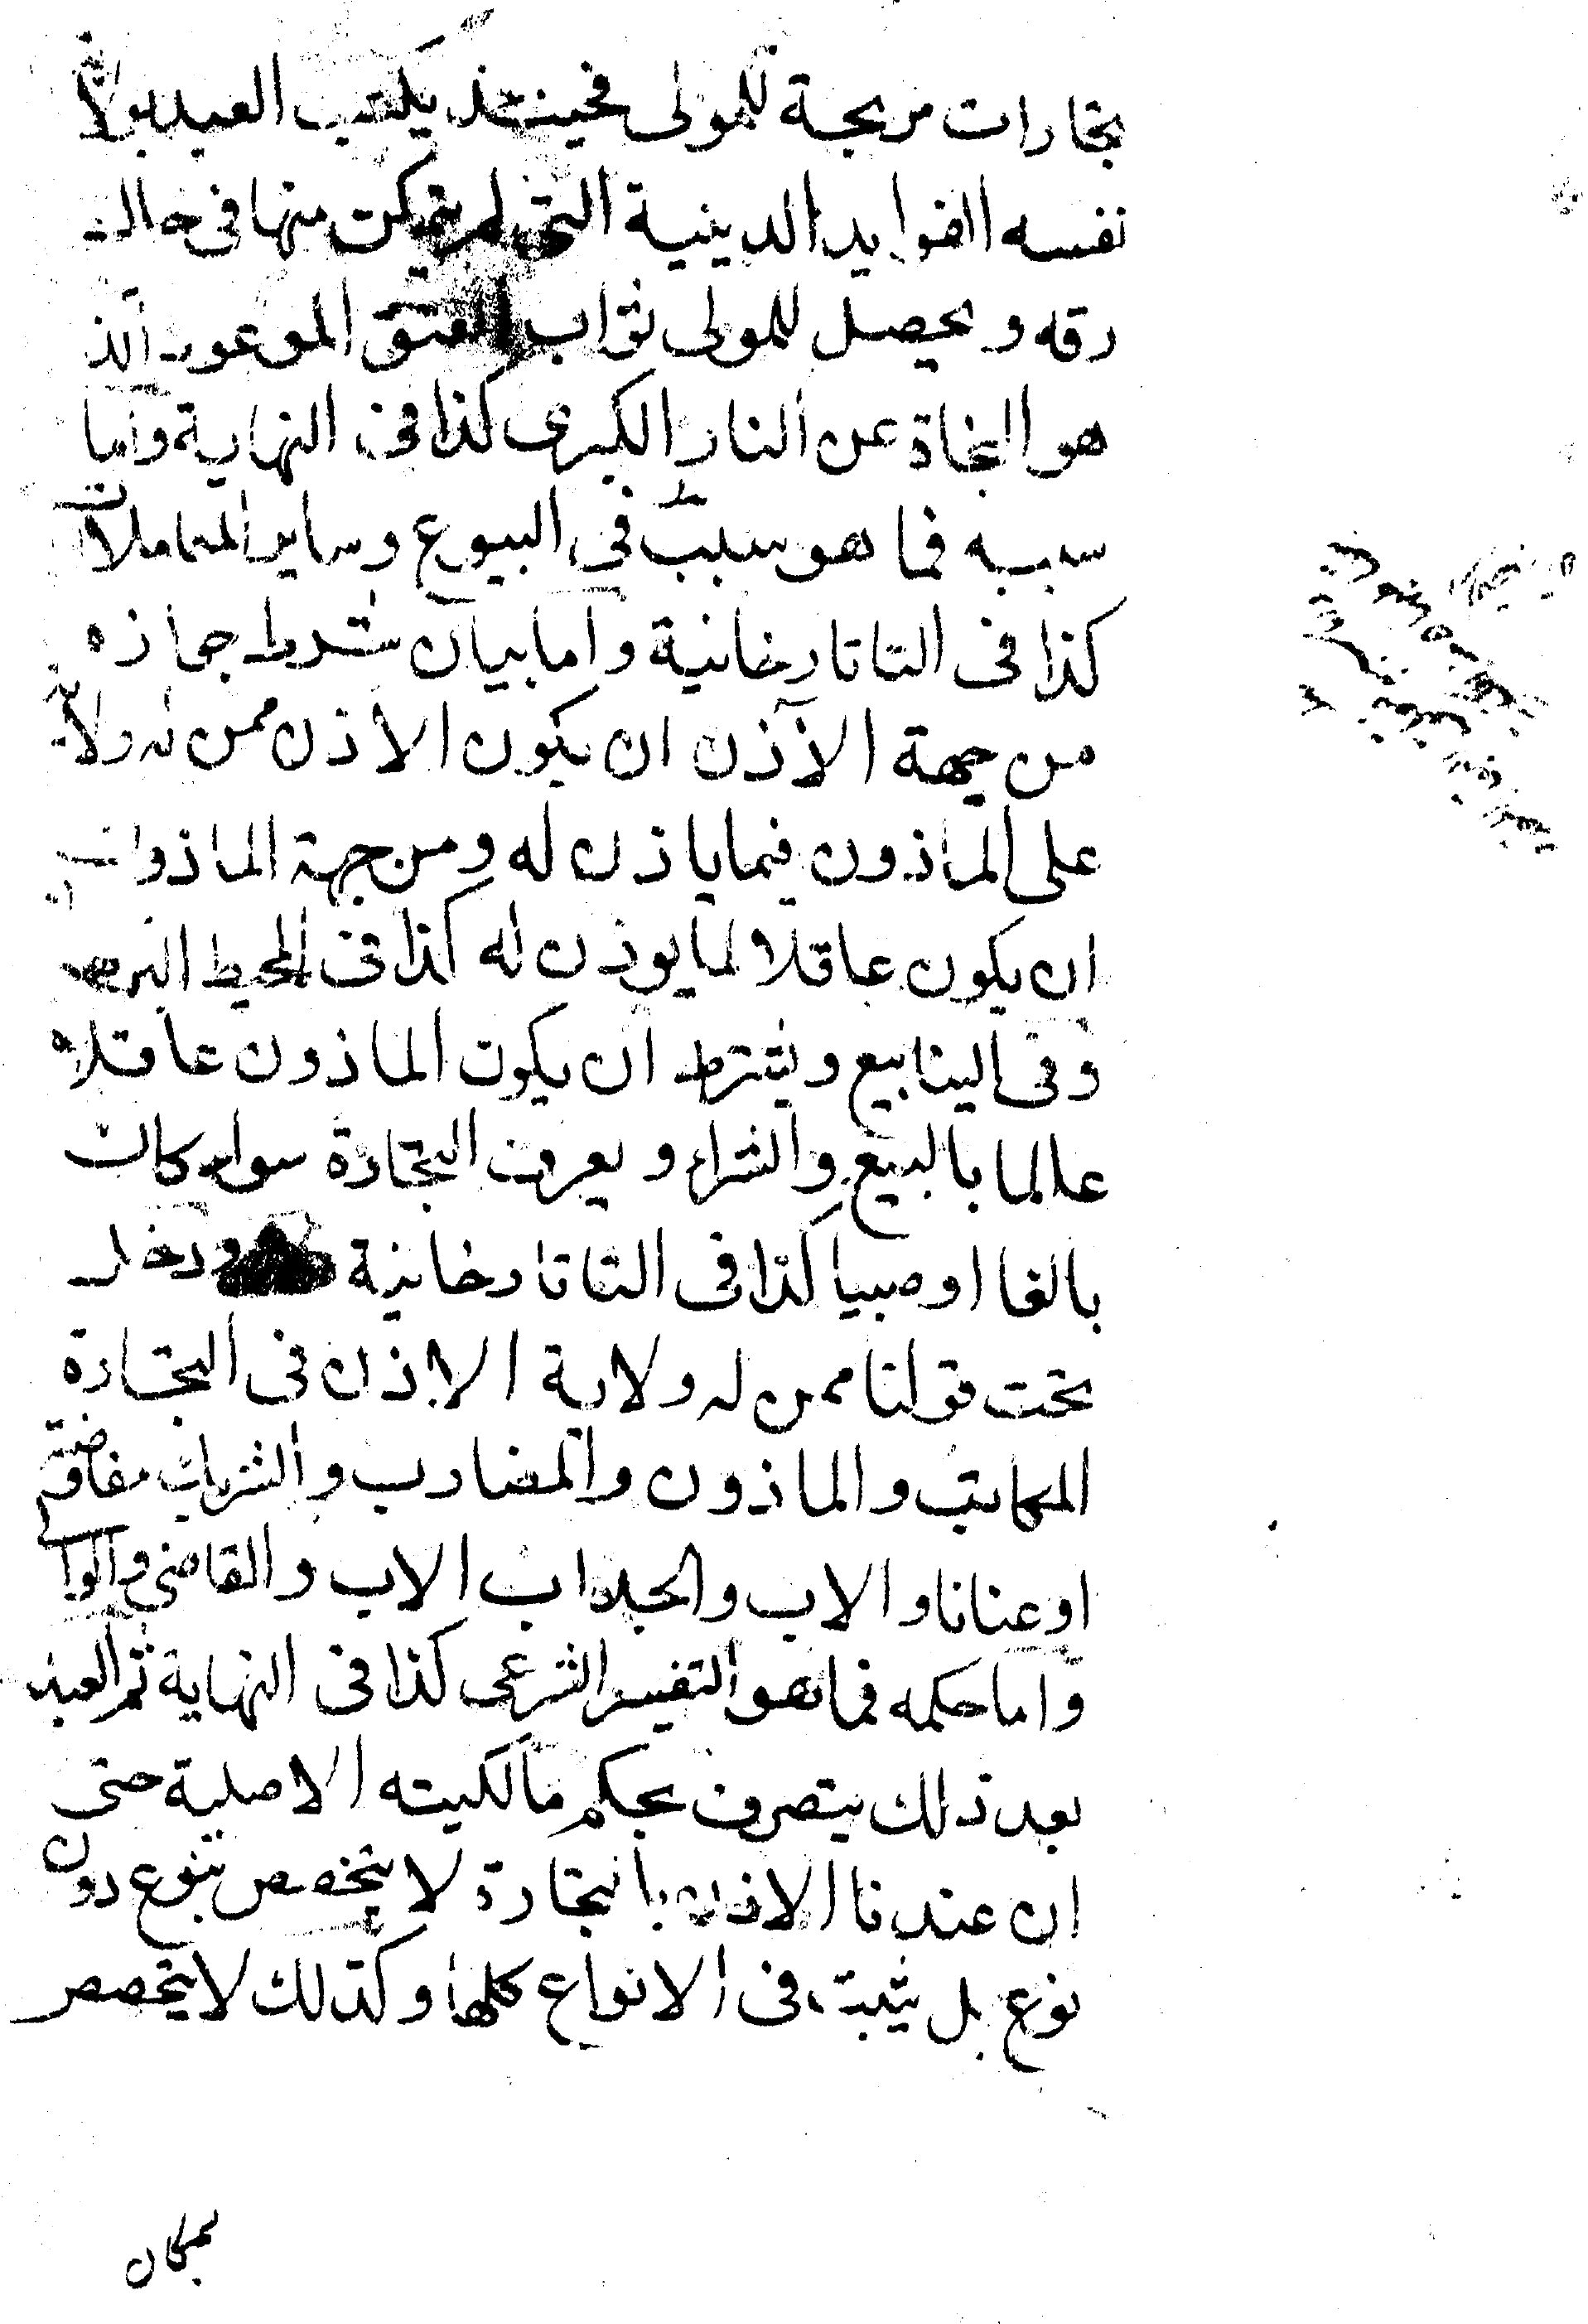 تجارات مربحة للمولى فحينئذ يكتب العبد بولاء
نفسه الفوايد الدينية التى لم يتمكن منها فى حال
رقه ويحصل للمولى ثواب العتق الموعود الذ
هو النجاة عن النار الكبرى كذا فى النهاية واما
سببه فما هو سبب فى البيوع وساير المعاملات
كذا فى التاتارخانية واما بيان شرط جوازه
من جهة الآذن ان يكون الاذن ممن له ولاية
على الماذون فيما ياذن له ومن جهة الماذون
ان يكون عاقلا لما يوذن له كذا فى المحيط البرها
وفى الينابيع ويشترط ان يكون الماذون عاقلا
عالما بالبيع والشراء ويعرف التجارة سواء كان
بالغا او صبيا كذا فى التاتارخانية ودخل
تحت قولنا ممن له ولاية الاذن فى التجارة
المكاتب والماذون والمضارب والشريك مفاوضة
او عنانا والاب والجد اب الاب والقاضى والوالى
واما حكمه فما هو التفسير الشرعى كذا فى النهاية ثم العبد
بعد ذلك يتصرف بحكم مالكيته الاصلية حتى
ان عندنا الاذن بالتجارة لا يتخصص بنوع دون
نوع بل يثبت فى الانواع كلها وكذلك لا يتخصص
بمكان